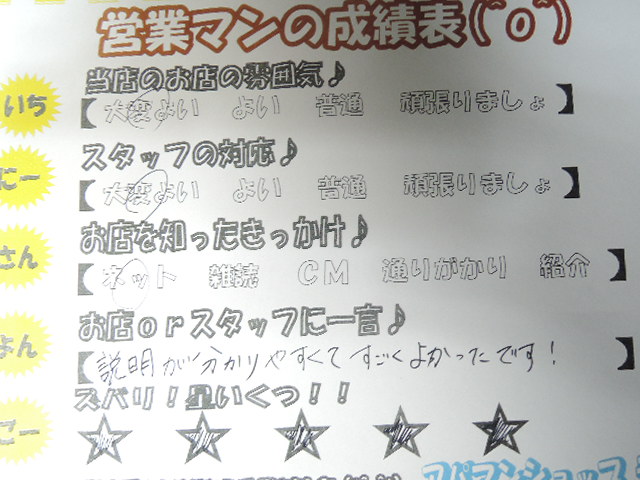 営業マンの成績表(^o^)
いち
当店のお店の雰囲気♪
【 大変よい よい 普通 頑張りましょ 】
にー
スタッフの対応♪
【 大変よい よい 普通 頑張りましょ 】
さん
お店を知ったきっかけ♪
【 ネット 雑誌 CM 通りがかり 紹介 】
よん
お店orスタッフに一言♪
【 説明が分かりやすくてすごくよかったです! 】
ごー
ズバリ!皿いくつ!!
★ ★ ★ ★ ★
アパマンショップ